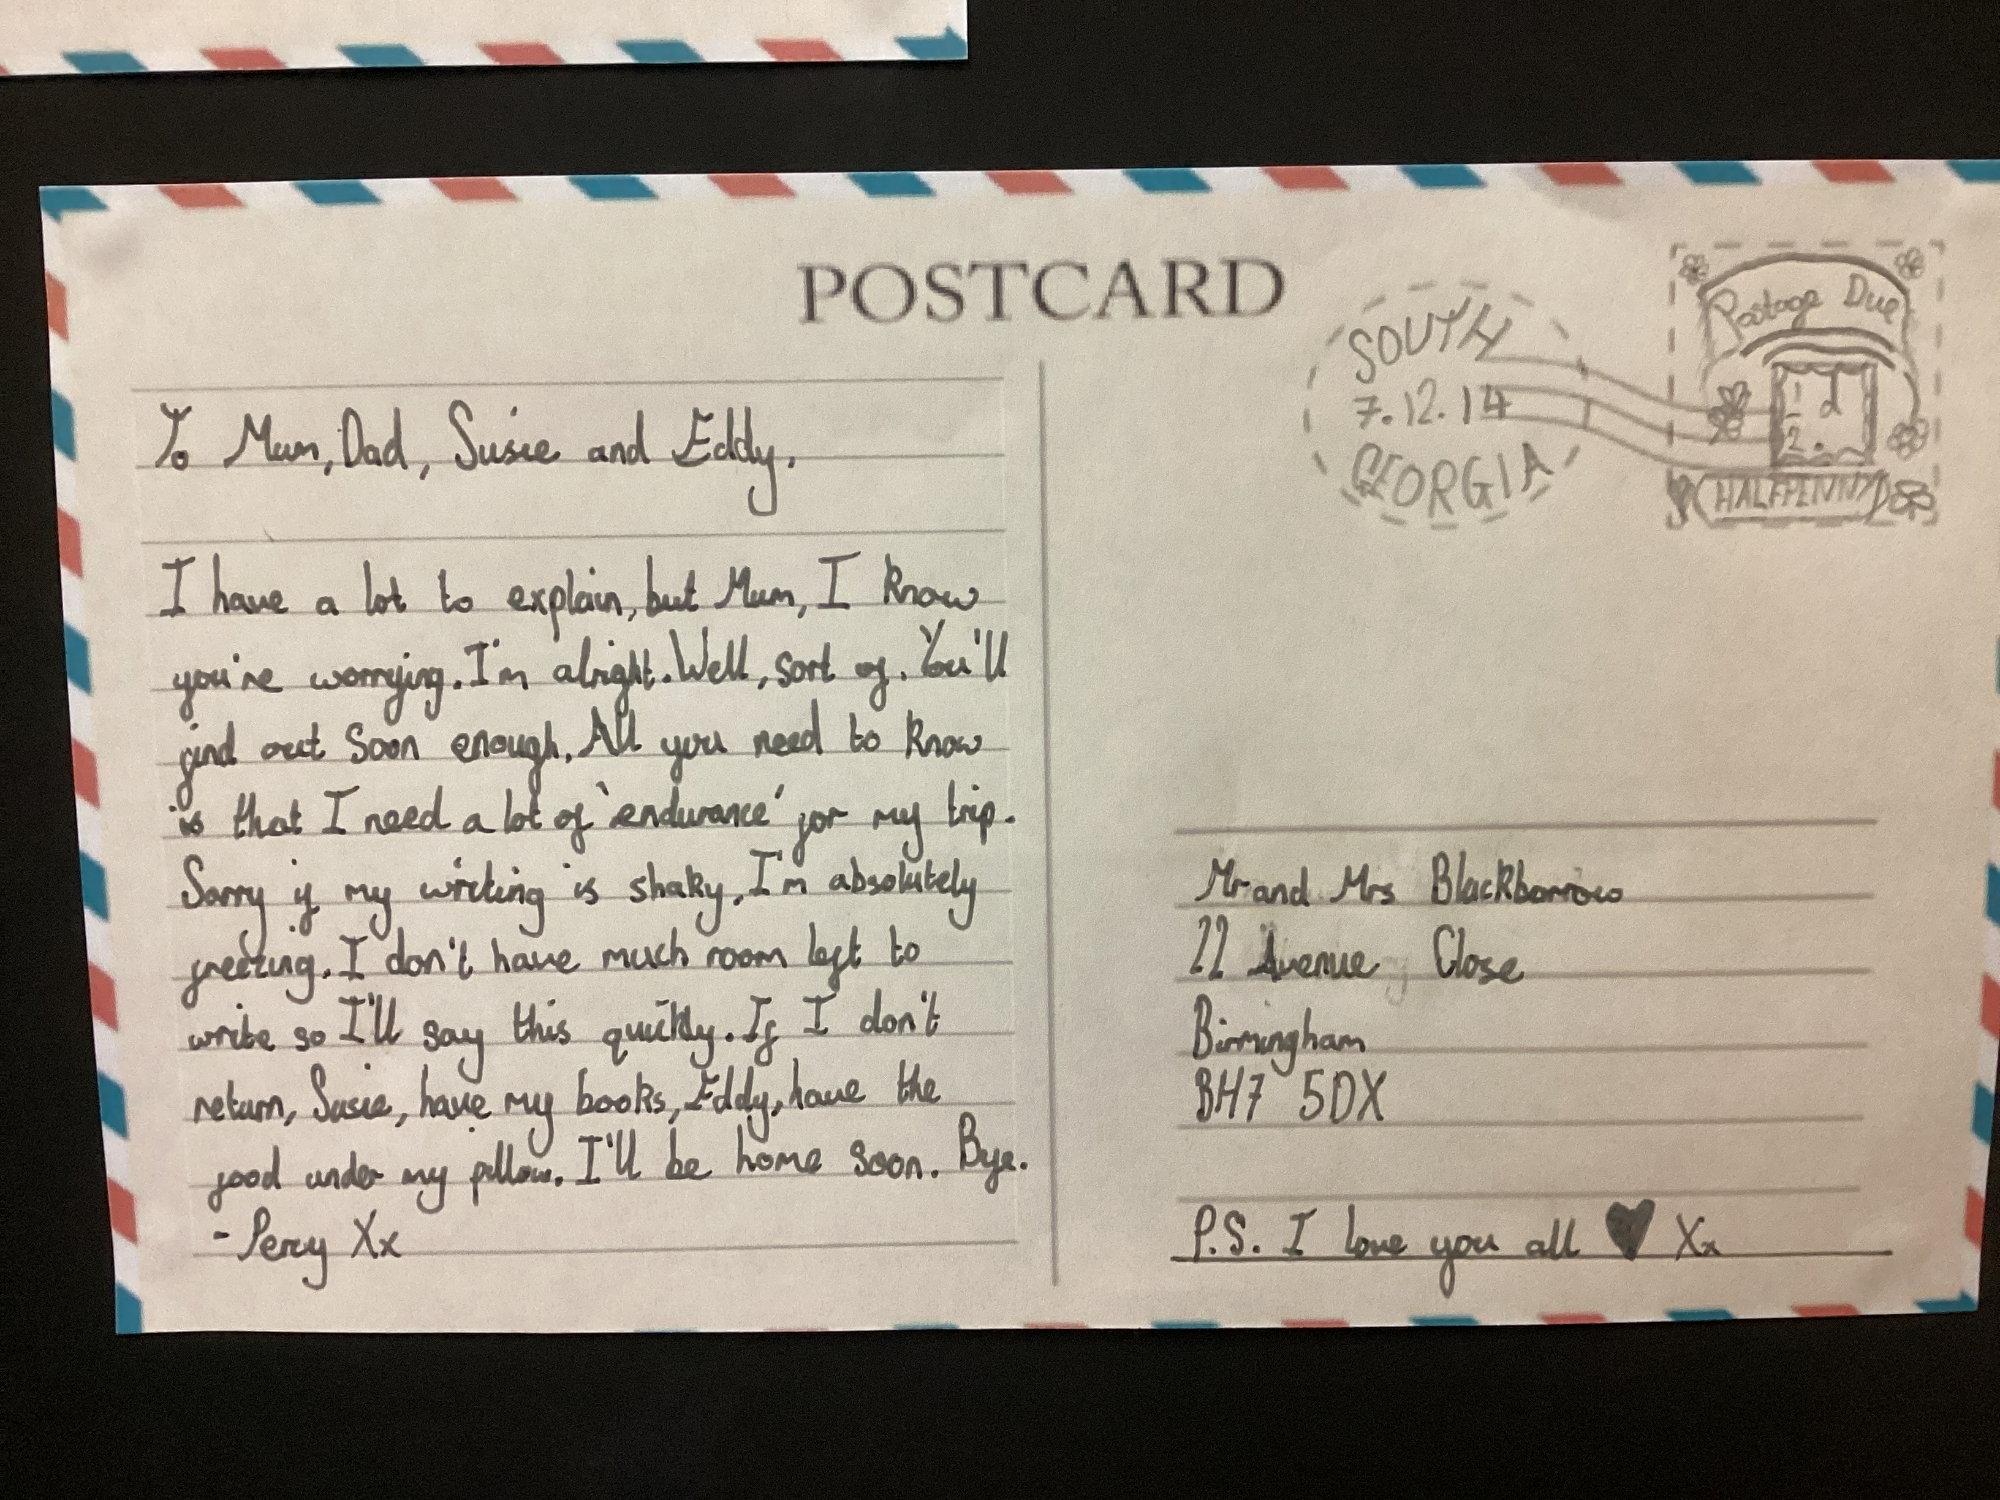 POSTCARD
SOUTH
7.12.14
GEORGIA
Postage Due
1/2 d.
HALFPENNY
To Mum, Dad, Susie and Eddy,
I have a lot to explain, but Mum, I know
you're worrying. I'm alright. Well, sort of. You'll
find out soon enough. All you need to know
is that I need a lot of 'endurance' for my trip.
Sorry if my writing is shaky, I'm absolutely
freezing. I don't have much room left to
write so I'll say this quickly. If I don't
return, Susie, have my books, Eddy, have the
food under my pillow. I'll be home soon. Bye.
- Percy Xx
Mr and Mrs Blackborrow
22 Avenue Close
Birmingham
BH7 5DX
P.S. I love you all ♥ Xx